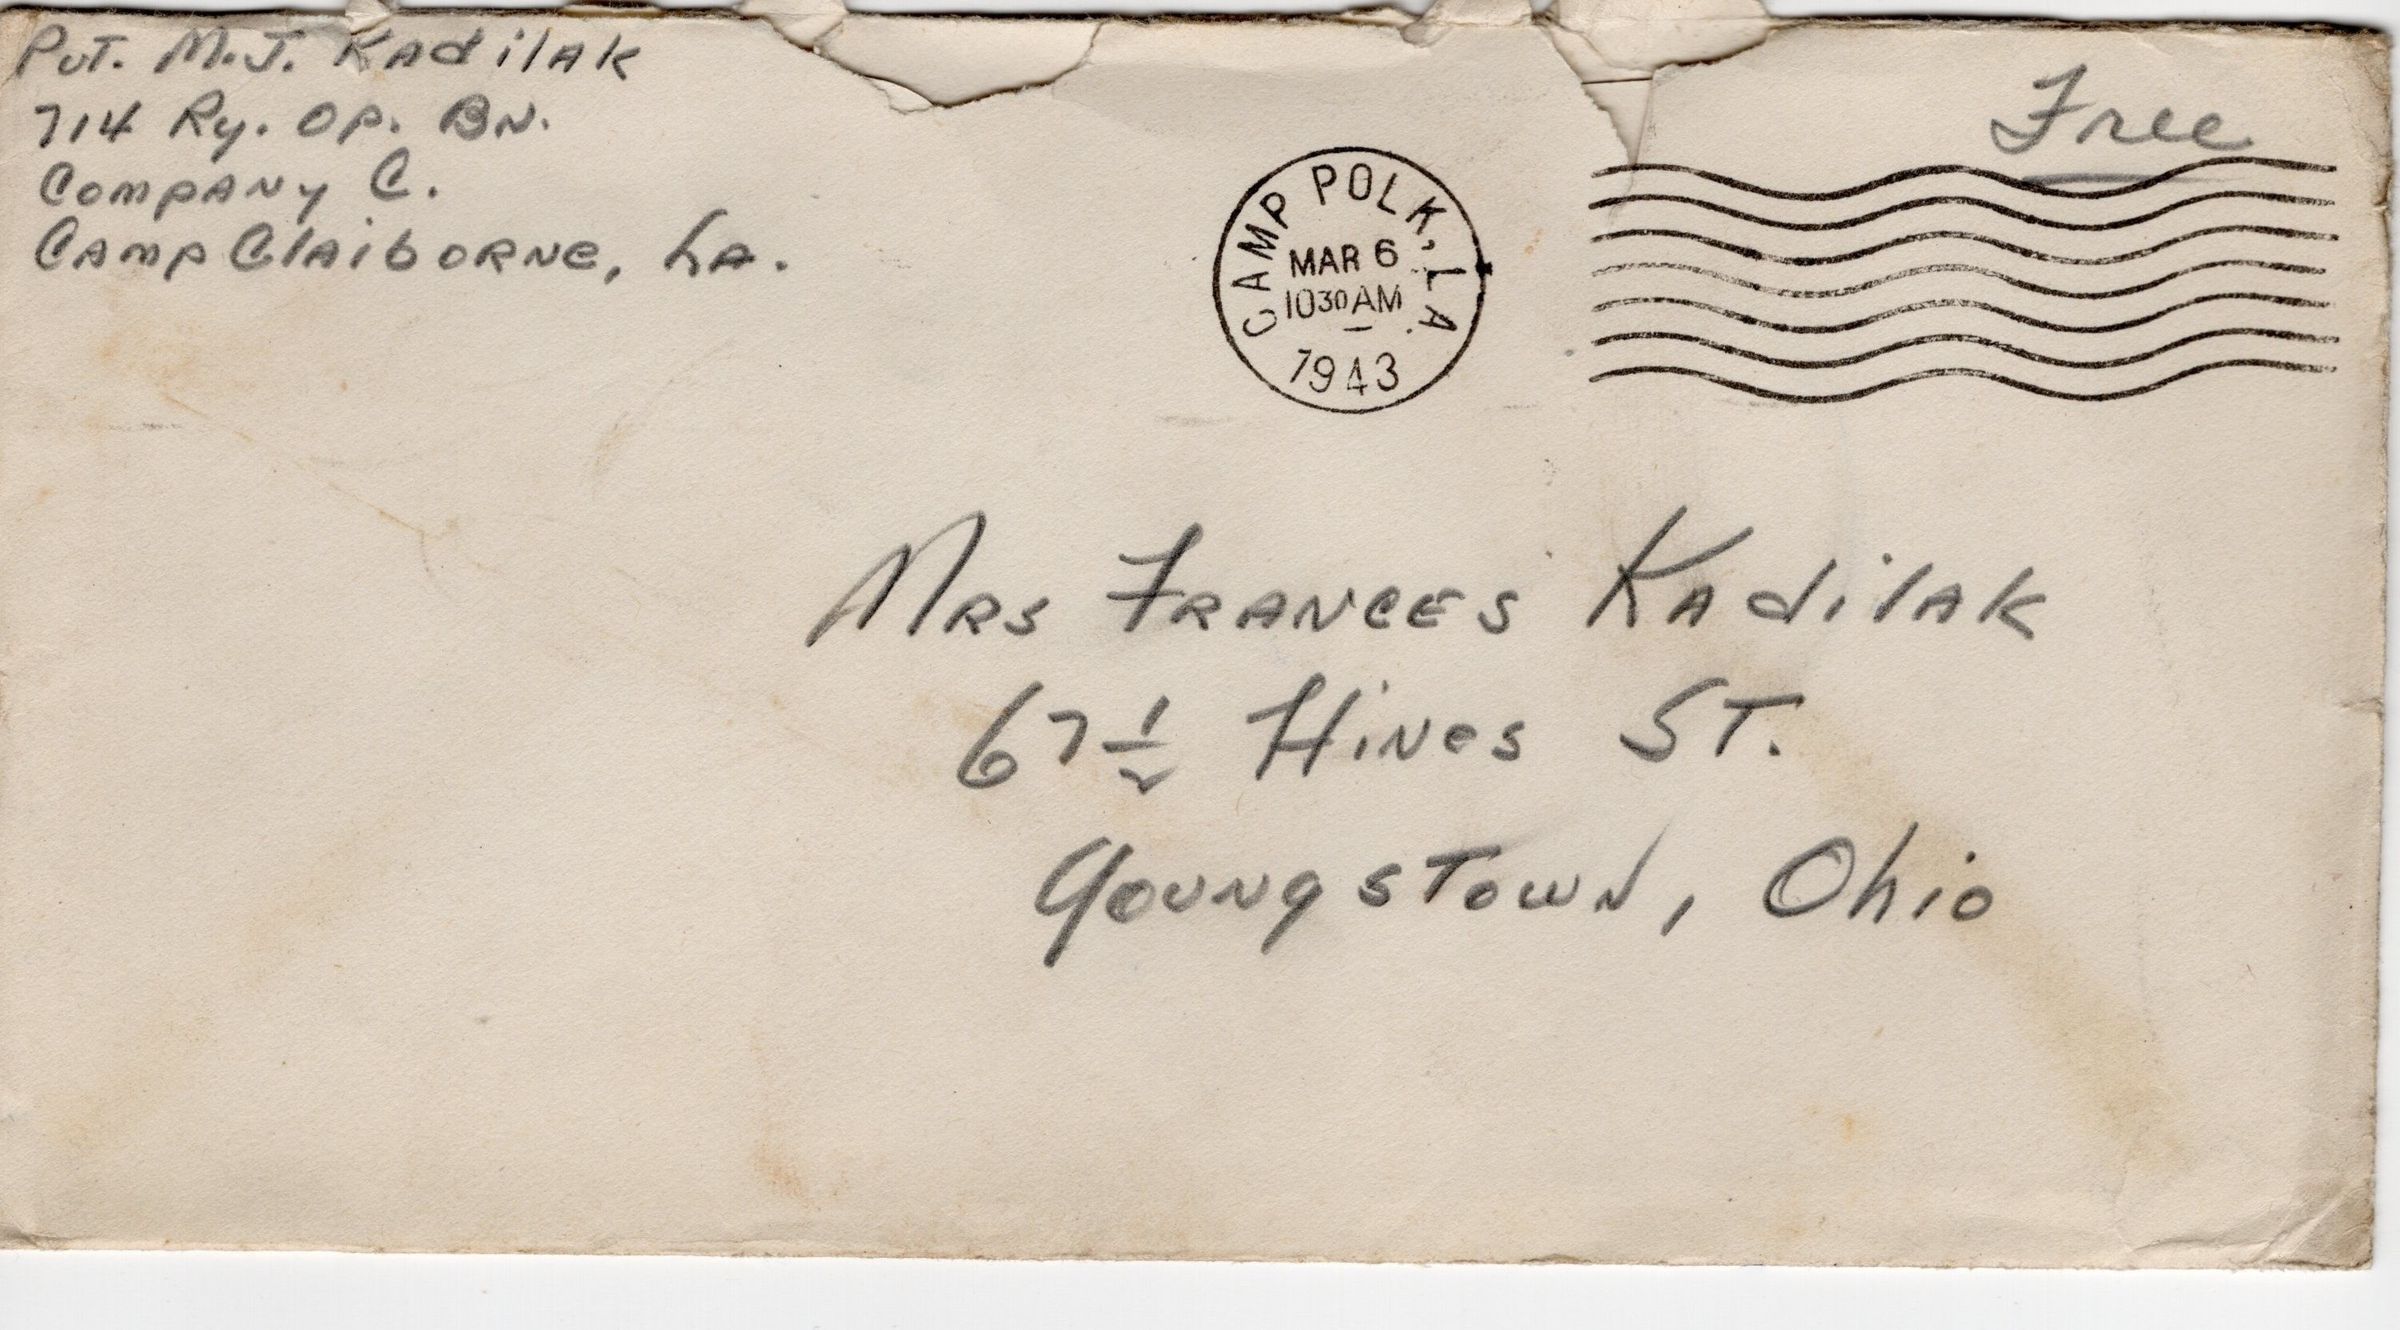 Pvt. M.J. Kadilak
714 Ry. Op. Bn.
Company C.
Camp Claiborne, La.
Free
CAMP POLK, LA.
MAR 6
1030 AM
1943
Mrs Frances Kadilak
67 1/2 Hines St.
Youngstown, Ohio